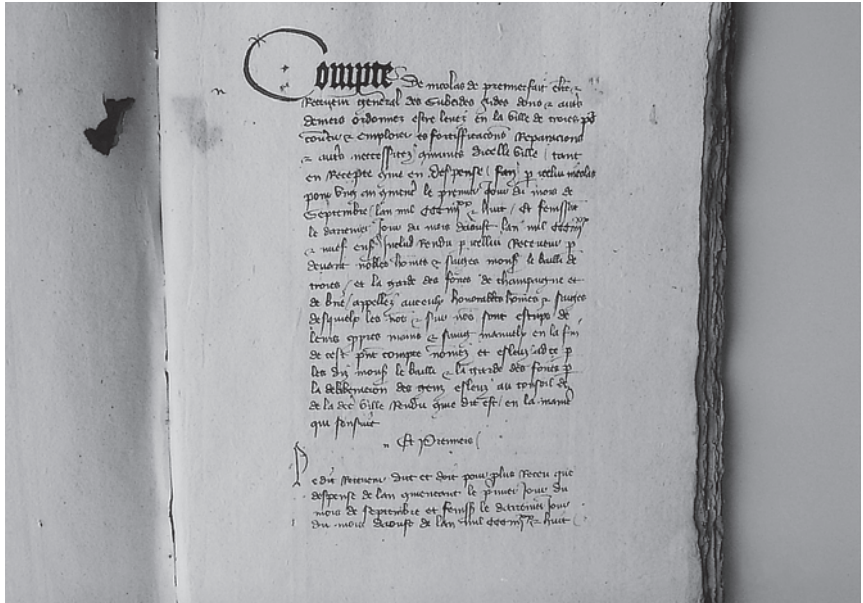 Compte De nicolas de premierfait esleu &
Receveur general des Subcides aides dons & autres
deniers ordonnez estre levez en la ville de troies pour
tourner & emploier es fortifficacions Reparacions
& autres necessitez communes dicelle ville / tant
en Recepte que en despense / fait par icellui nicolas
pour ung an commencent le premier Jour du mois de
Septembre / lan mil CCCC iiiixx & huit / Et fenissant
le darrenier Jour du mois daoust lan mil CCCC iiiixx
& neuf Rendu par icellui Receveur par
devant nobles hommes & saiges monsr le bailli de
troies / et la garde des foires de champaigne et
de brie / appellez avec eulx honorables hommes & saiges
desquelx les noms & seurnoms sont escrips de
leurs propres mains & saings manuelz en la fin
de cest present compte nommez et esleuz ad ce par
les diz monsr le bailli & la garde des foires par
la deliberacion des gens esleuz au conseil de
de la dicte ville Rendu que dit est / en la maniere
qui sensuit
Et Premiers /
Le dit Receveur doit pour plus Receu que
despense de lan commencent le premier Jour du
mois de septembre et feniss le darrenier Jour
du mois daoust de lan mil CCCC iiiixx & huit /